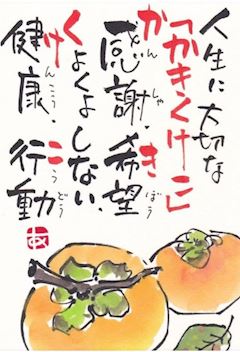 人生に大切な
「かきくけこ」
感謝、希望
くよくよしない、
健康、行動